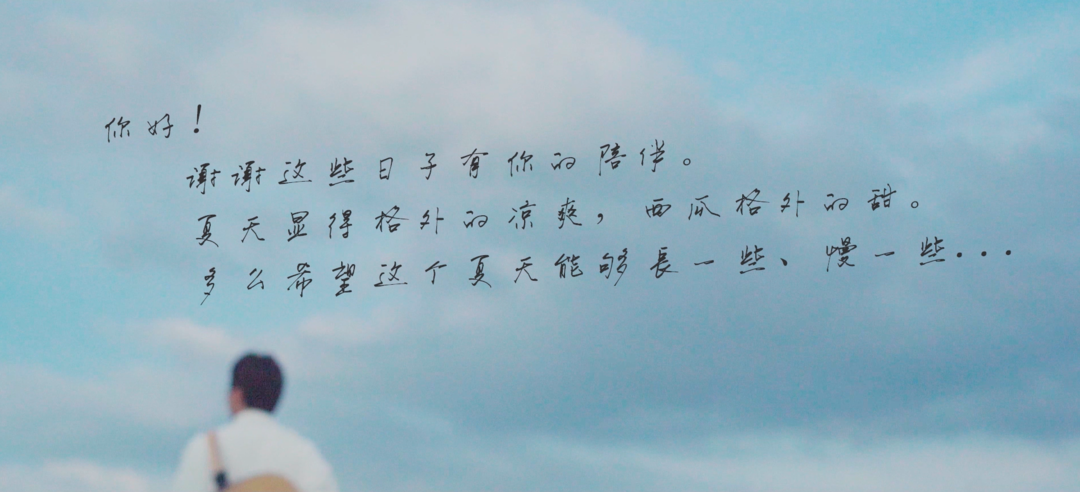 你好！
谢谢这些日子有你的陪伴。
夏天显得格外的凉爽，西瓜格外的甜。
多么希望这个夏天能够長一些、慢一些...